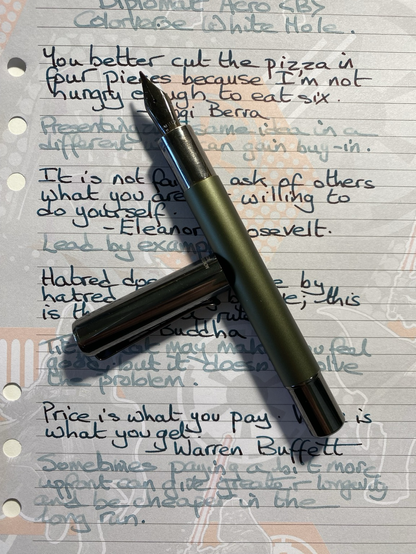 Diplomat Aero <B>
Colorverse White Hole.
You better cut the pizza in
four pieces because I'm not
hungry enough to eat six.
Yogi Berra
Presenting same idea in a
different can gain buy-in.
It is not ask of others
what you are willing to
do yourself.
- Eleanor Roosevelt.
Lead by example
Hatred does by
hatred this
is
Buddha
may make you feel
good, but it doesn't solve
the problem.
Price is what you pay. is
what you get.
- Warren Buffett
Sometimes paying a bit more
upfront can give greater longevity
and be cheaper in the
long run.